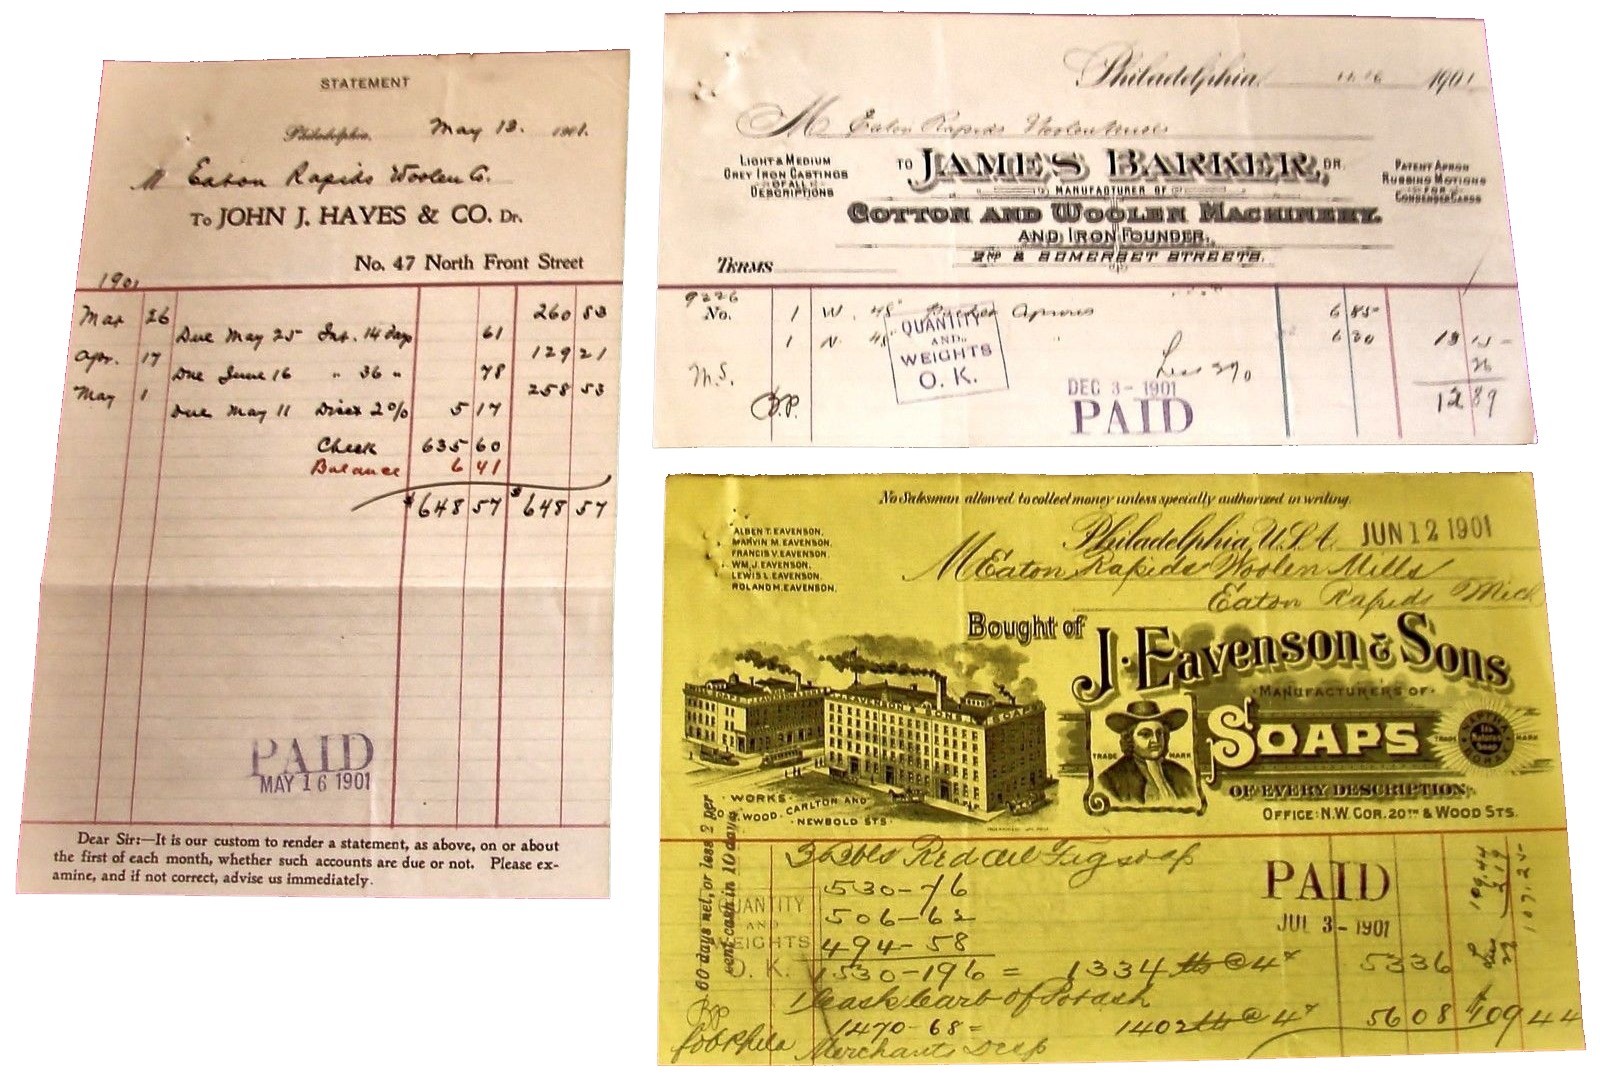 STATEMENT
Philadelphia, May 13. 1901.
M Eaton Rapids Woolen Co.
To JOHN J. HAYES & CO. Dr.
No. 47 North Front Street
1901
Mar 26 260 83
Due May 25 Int. 14 days 61
Apr. 17 129 21
Due June 16 " 36 " 78
May 1 258 53
Due May 11 Disct 2% 5 17
Check 635 60
Balance 6 41
$648 57 $648 57
PAID
MAY 16 1901
Dear Sir:—It is our custom to render a statement, as above, on or about
the first of each month, whether such accounts are due or not. Please ex-
amine, and if not correct, advise us immediately.
Philadelphia, 1901
M Eaton Rapids Woolen Mills
LIGHT & MEDIUM
GREY IRON CASTINGS
OF ALL
DESCRIPTIONS
TO JAMES BARKER, DR.
MANUFACTURER OF
COTTON AND WOOLEN MACHINERY,
AND IRON FOUNDER,
2ND & SOMERSET STREETS.
PATENT APRON
RUBBING MOTIONS
FOR
CONDENSER CARDS
TERMS
9226
No. 1 W. 48" Aprons 6 85
1 N. 48" 6 30 13 15
M.S. Less 2% 26
B.P. 12 89
QUANTITY
AND
WEIGHTS
O. K.
DEC 3-1901
PAID
No Salesman allowed to collect money unless specially authorized in writing.
ALBEN T. EAVENSON,
MARVIN M. EAVENSON,
FRANCIS V. EAVENSON,
WM. J. EAVENSON,
LEWIS L. EAVENSON,
ROLAND M. EAVENSON.
Philadelphia, U.S.A. JUN 12 1901
M Eaton Rapids Woolen Mills
Eaton Rapids Mich
Bought of J. Eavenson & Sons
MANUFACTURERS OF
SOAPS
TRADE MARK
TRADE MARK
OF EVERY DESCRIPTION,
OFFICE: N.W. COR. 20TH & WOOD STS.
J. EAVENSON & SONS SOAPS
WORKS
WOOD, CARLTON AND
NEWBOLD STS.
60 days net, or less 2 per
cent cash in 10 days.
3 bbls Red Oil Fig soap
530-76
506-62
494-58
1530-196 = 1334 lbs @ 4¢ 5336
1 Cask Carb of Potash
1470-68= 1402 lbs @ 4¢ 5608 $109 44
Merchants Desp
QUANTITY
AND
WEIGHTS
O. K.
B.P.
fob Phila
PAID
JUL 3-1901
109.44
Less 2% 2.19
107.25